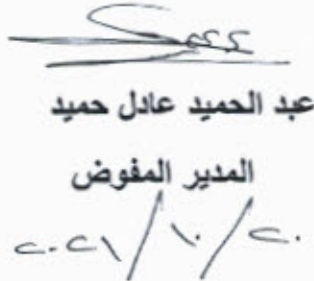 عبد الحميد عادل حميد
المدير المفوض
٢٠٢١/١٠/٢٠